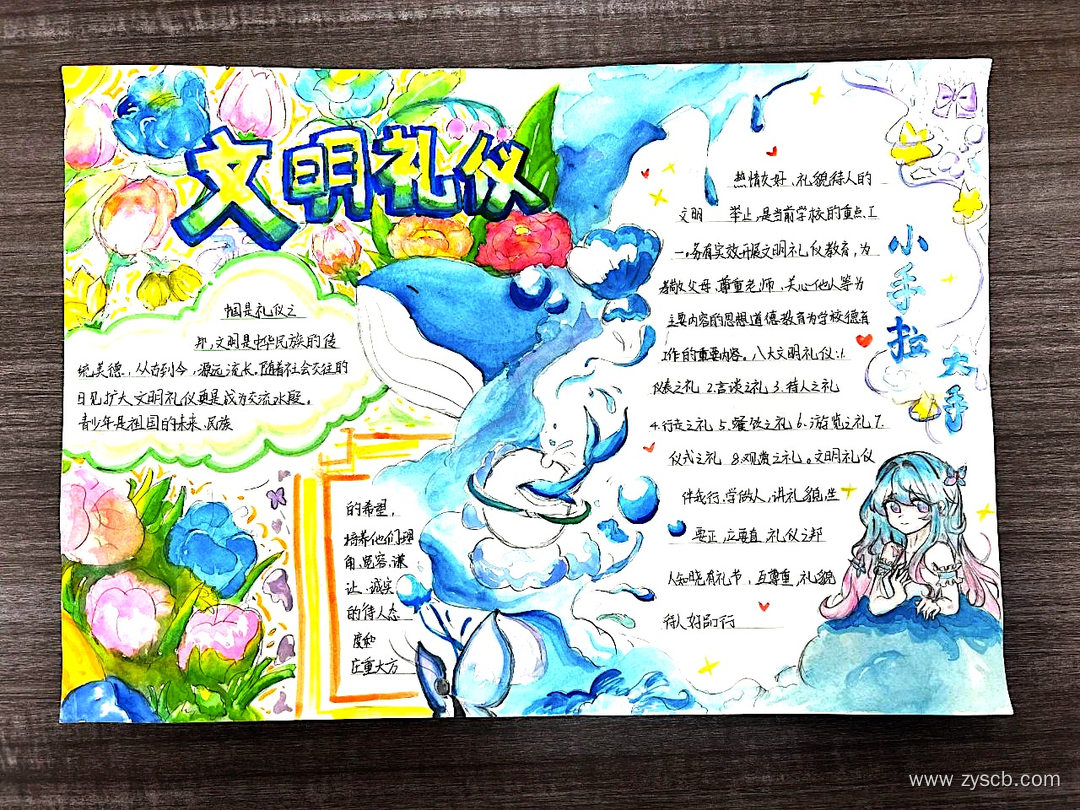 文明礼仪
国是礼仪之
邦,文明是中华民族的传
统美德,从古到今,源远流长。随着社会交往的
日见扩大,文明礼仪更是成为交流水暖。
青少年是祖国的未来、民族
的希望,
培养他们理
解、宽容、谦
让、诚实
的待人态
度和
庄重大方
热情友好、礼貌待人的
文明 举止,是当前学校的重点工
一,务有实效开展文明礼仪教育,为
孝敬父母、尊重老师、关心他人等为
主要内容的思想道德教育为学校德育
工作的重要内容。八大文明礼仪:1.
仪表之礼 2.言谈之礼 3.待人之礼
4.行走之礼 5.餐饮之礼 6.游览之礼 7.
仪式之礼 8.观赏之礼。文明礼仪
伴我行,学做人,讲礼貌,坐
要正,立要直 礼仪之邦
人知晓有礼节,互尊重,礼貌
待人好的行
小手拉
大手
www.zyscb.com